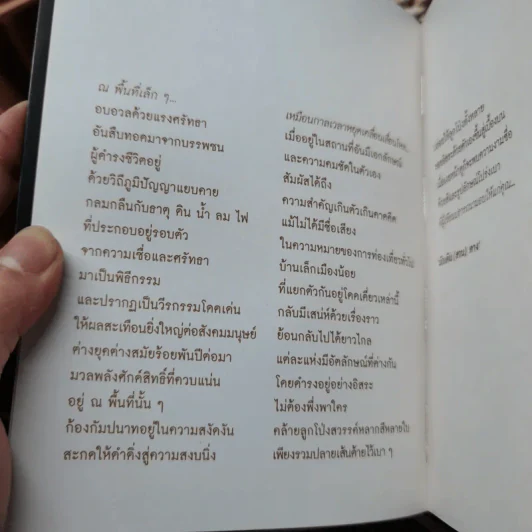 ณ พื้นที่เล็ก ๆ...
อบอวลด้วยแรงศรัทธา
อันสืบทอดมาจากบรรพชน
ผู้ดำรงชีวิตอยู่
ด้วยวิถีภูมิปัญญาแยบคาย
กลมกลืนกับธาตุ ดิน น้ำ ลม ไฟ
ที่ประกอบอยู่รอบตัว
จากความเชื่อและศรัทธา
มาเป็นพิธีกรรม
และปรากฏเป็นวีรกรรมโดดเด่น
ให้ผลสะเทือนยิ่งใหญ่ต่อสังคมมนุษย์
ต่างยุคต่างสมัยร้อยพันปีต่อมา
มวลพลังศักดิ์สิทธิ์ที่ควบแน่น
อยู่ ณ พื้นที่นั้น ๆ
ก้องกัมปนาทอยู่ในความสงัดงัน
สะกดให้ดำดิ่งสู่ความสงบนิ่ง
เหมือนกาลเวลาหยุดเคลื่อน
เมื่ออยู่ในสถานที่อันมีเอกลักษณ์
และความคมชัดในตัวเอง
สัมผัสได้ถึง
ความสำคัญเกินตัวเกินคาดคิด
แม้ไม่ได้มีชื่อเสียง
ในความหมายของการท่องเที่ยว
บ้านเล็กเมืองน้อย
ที่แยกตัวกันอยู่โดดเดี่ยวเหล่านี้
กลับมีเสน่ห์ด้วยเรื่องราว
ย้อนกลับไปได้ยาวไกล
แต่ละแห่งมีอัตลักษณ์ที่ต่างกัน
โดยดำรงอยู่อย่างอิสระ
ไม่ต้องพึ่งพาใคร
คล้ายลูกโป่งสวรรค์หลากสีหลายใบ
เพียงรวมปลายเส้นด้ายไว้เบา ๆ